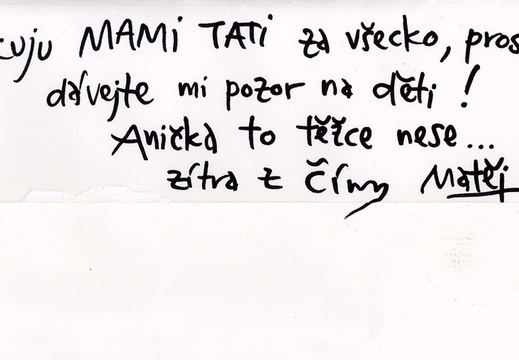 cuju MAMI TATI za všecko, pros
dávejte mi pozor na děti!
Anička to těžce nese...
zítra z Číny Matěj